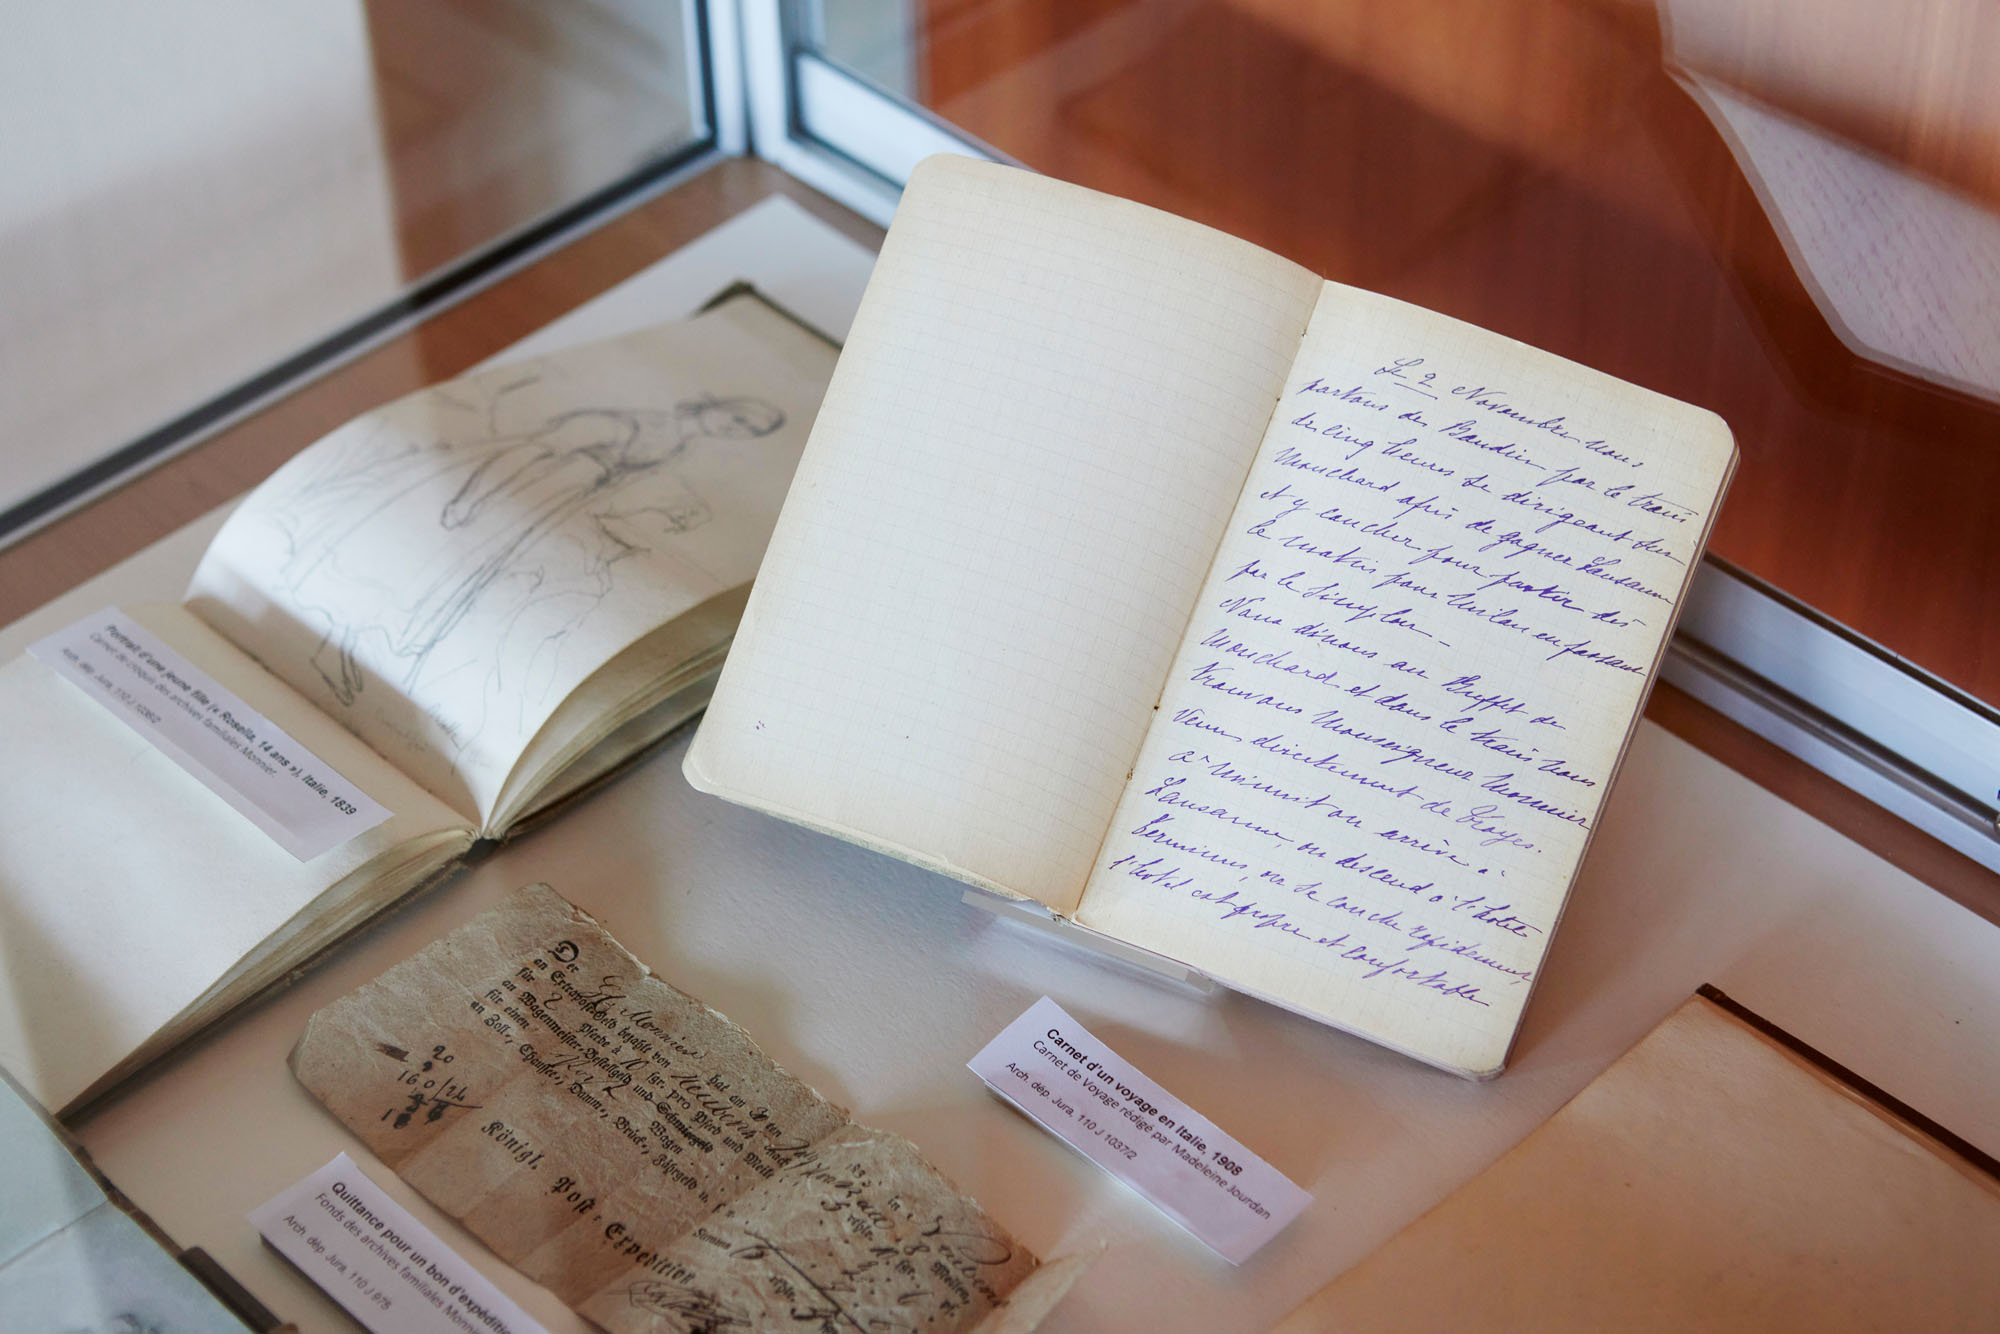 Le 2 Novembre nous
partons de Baudin par le train
de cinq heures se dirigeant sur
Mouchard afin de gagner Lausanne
et y coucher pour partir dès
le matin pour Milan en passant
par le Simplon –
Nous dînons au Buffet de
Mouchard et dans le train nous
trouvons Monseigneur Monnier
venu directement de Troyes.
à minuit on arrive à
Lausanne, on descend à l'hôtel
Terminus, on se couche rapidement,
l'hôtel est propre et confortable
Carnet d'un voyage en Italie, 1908
Carnet de Voyage rédigé par Madeleine Jourdan
Arch. dép. Jura, 110 J 1037/2
Portrait d'une jeune fille (« Rosella, 14 ans »), Italie, 1839
Carnet de croquis des archives familiales Monnier.
Arch. dép. Jura, 110 J 1036/2
Der Monnier hat am ten 183
an Extrapost-Geld bezahlt von nach
für 2 Pferde à sgr. pro Pferd und Meile
an Wagenmeister-Bestellgeld und Schmiergeld
für einen Wagen
an Zoll-, Chaussee-, Damm-, Brück-, Fährgeld
Summa
Königl. Post-Expedition
20
160/24
Quittance pour un bon d'expédition
Fonds des archives familiales Monnier
Arch. dép. Jura, 110 J 978